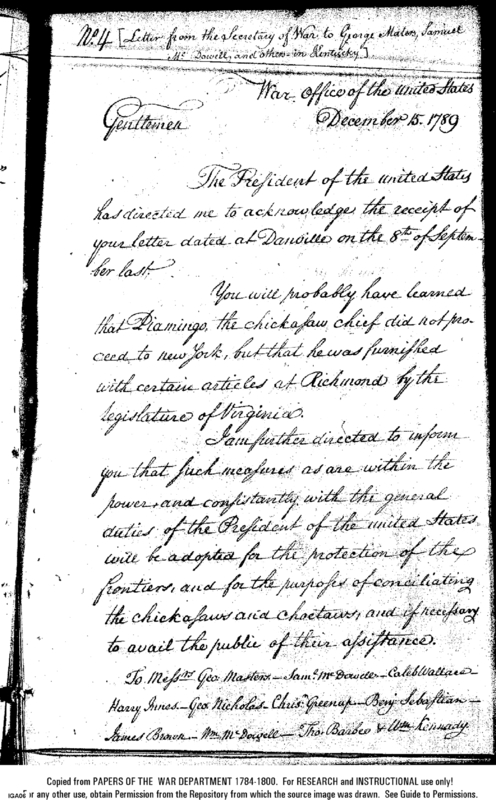 No. 4 [Letter from the Secretary of War to George Muter, Samuel
Mc Dowell, and others in Kentucky]
War Office of the united States
December 15. 1789
Gentlemen
The President of the united States
has directed me to acknowledge the receipt of
your letter dated at Danville on the 8th of Septem-
ber last.
You will probably have learned
that Piamingo, the chickasaw chief did not pro-
ceed to new York, but that he was furnished
with certain articles at Richmond by the
legislature of Virginia.
I am further directed to inform
you that such measures as are within the
power, and consistantly with the general
duties of the President of the united States
will be adopted for the protection of the
frontiers, and for the purposes of conciliating
the chickasaws and choctaws, and if necessary
to avail the public of their assistance.
To Messrs Geo Masters – Saml Mc Dowder – Caleb Wallace –
Harry Innes – Geo Nicholas – Chrisr Greenup – Benj Sebastian –
James Brown – Wm Mc Dowell – Thos Barbee & Wm Kennady
Copied from PAPERS OF THE WAR DEPARTMENT 1784-1800. For RESEARCH and INSTRUCTIONAL use only!
or any other use, obtain Permission from the Repository from which the source image was drawn. See Guide to Permissions.